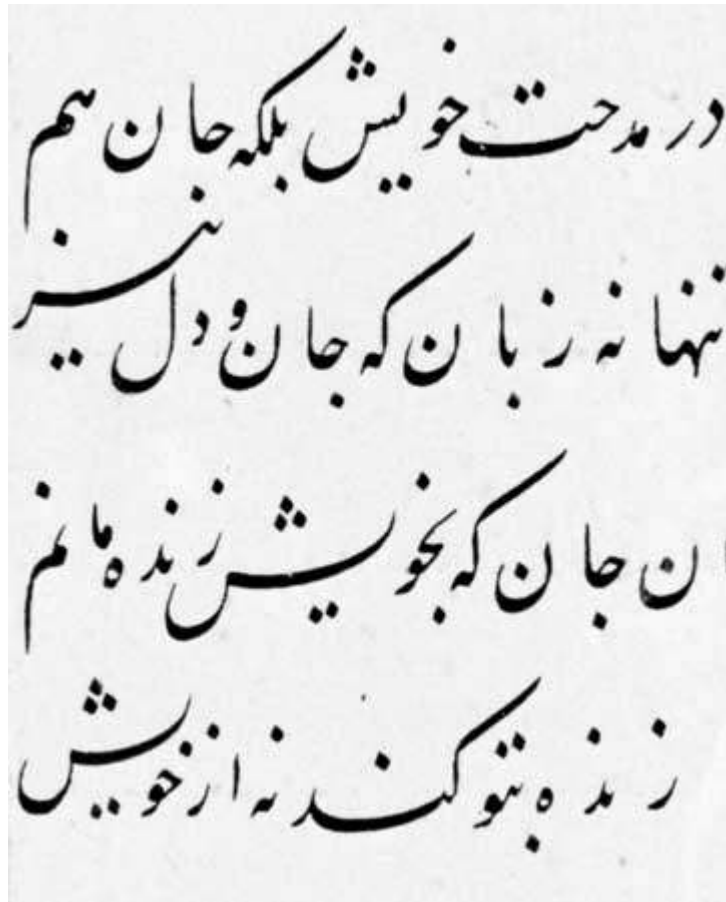 در مدحت خویش بلکه جان هم
تنها نه زبان که جان و دل نیز
ن جان که بخویش زنده مانم
زنده بتو کند نه از خویش